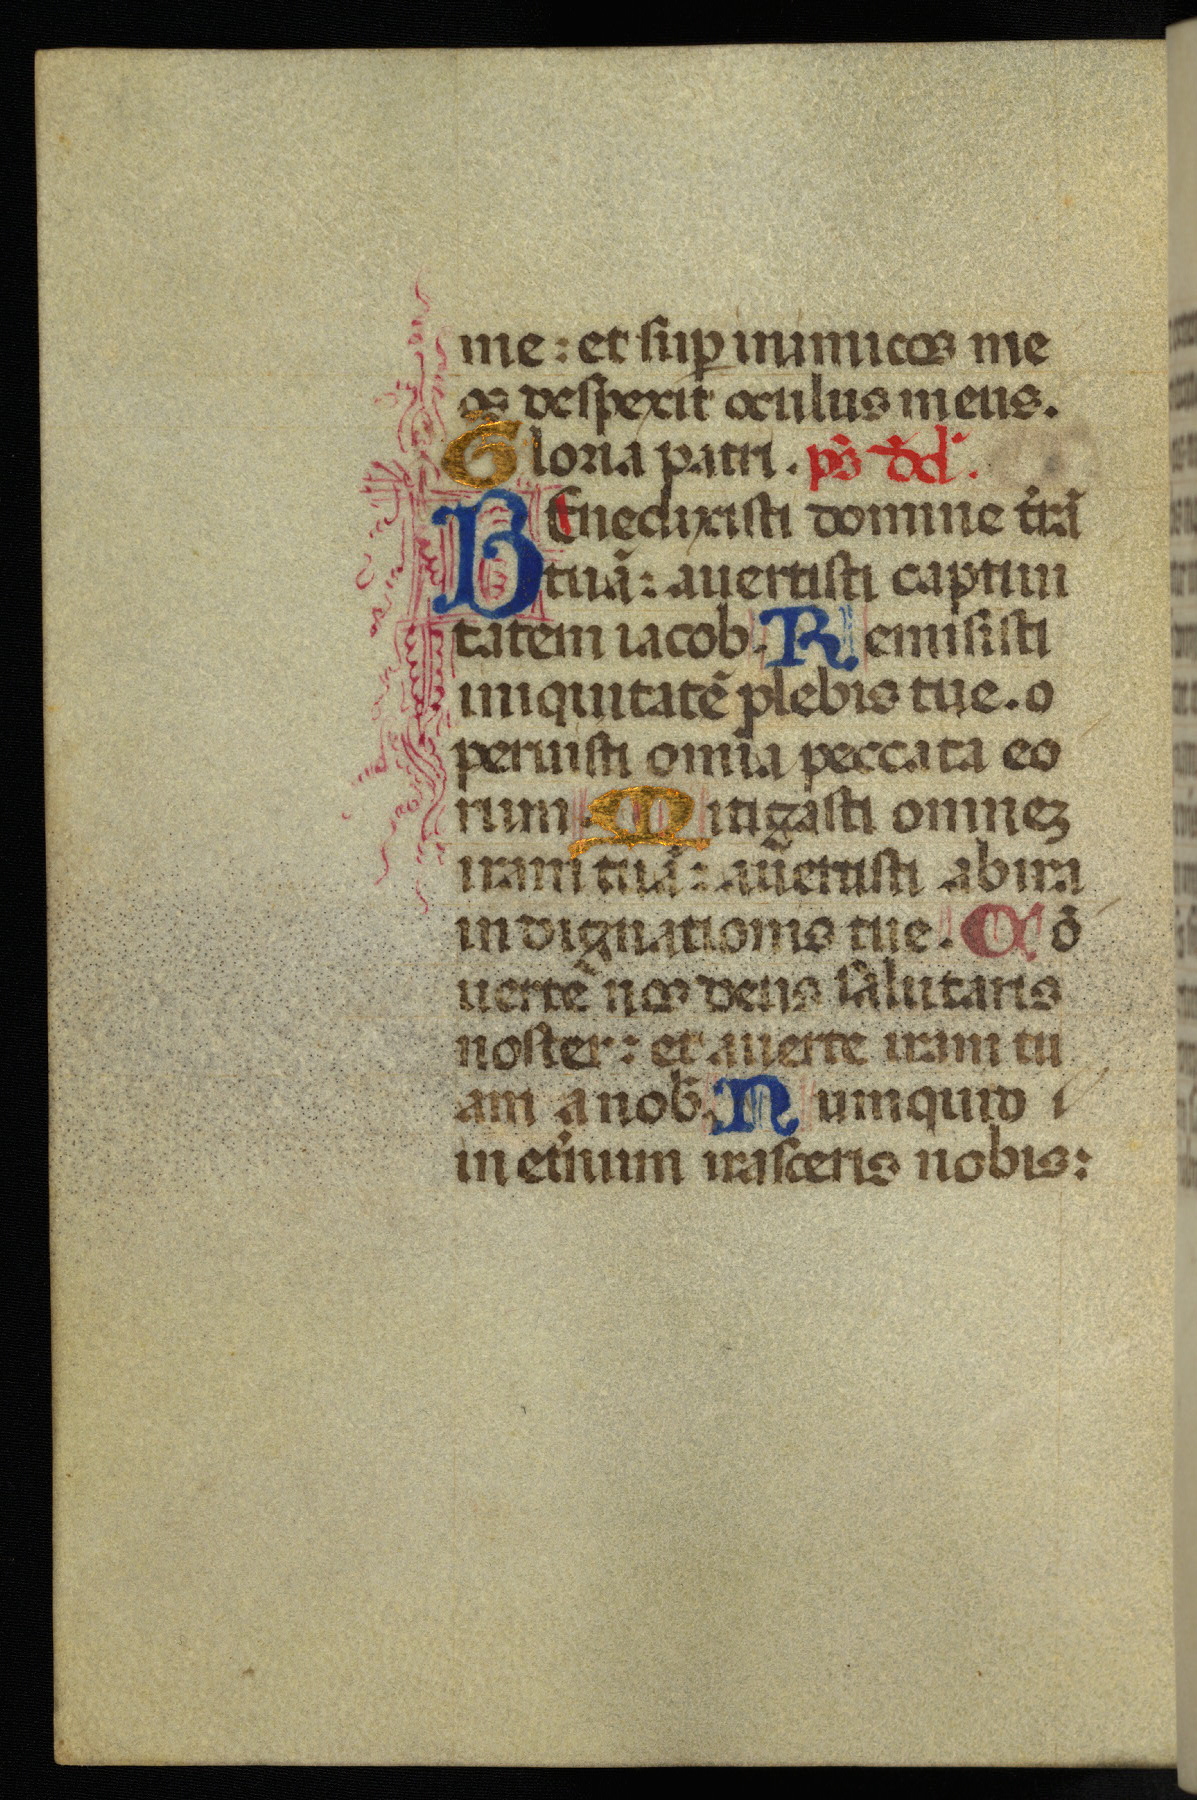 me: et sup̱ inimicos me
os despexit oculus meus.
Gloria patri. ps̄ dd̄.
BEnedixisti domine t̄rā
tuā: auertisti captiui
tatem iacob. Remisisti
iniquitatē plebis tue. o
peruisti om̄ia peccata eo
rum. Mitigasti omnez
iram tuā: auertisti ab ira
indignationis tue. Cō
uerte nos deus salutaris
noster: et auerte iram tu
am a nob̄. Numquid i
in et̄num irasceris nobis: